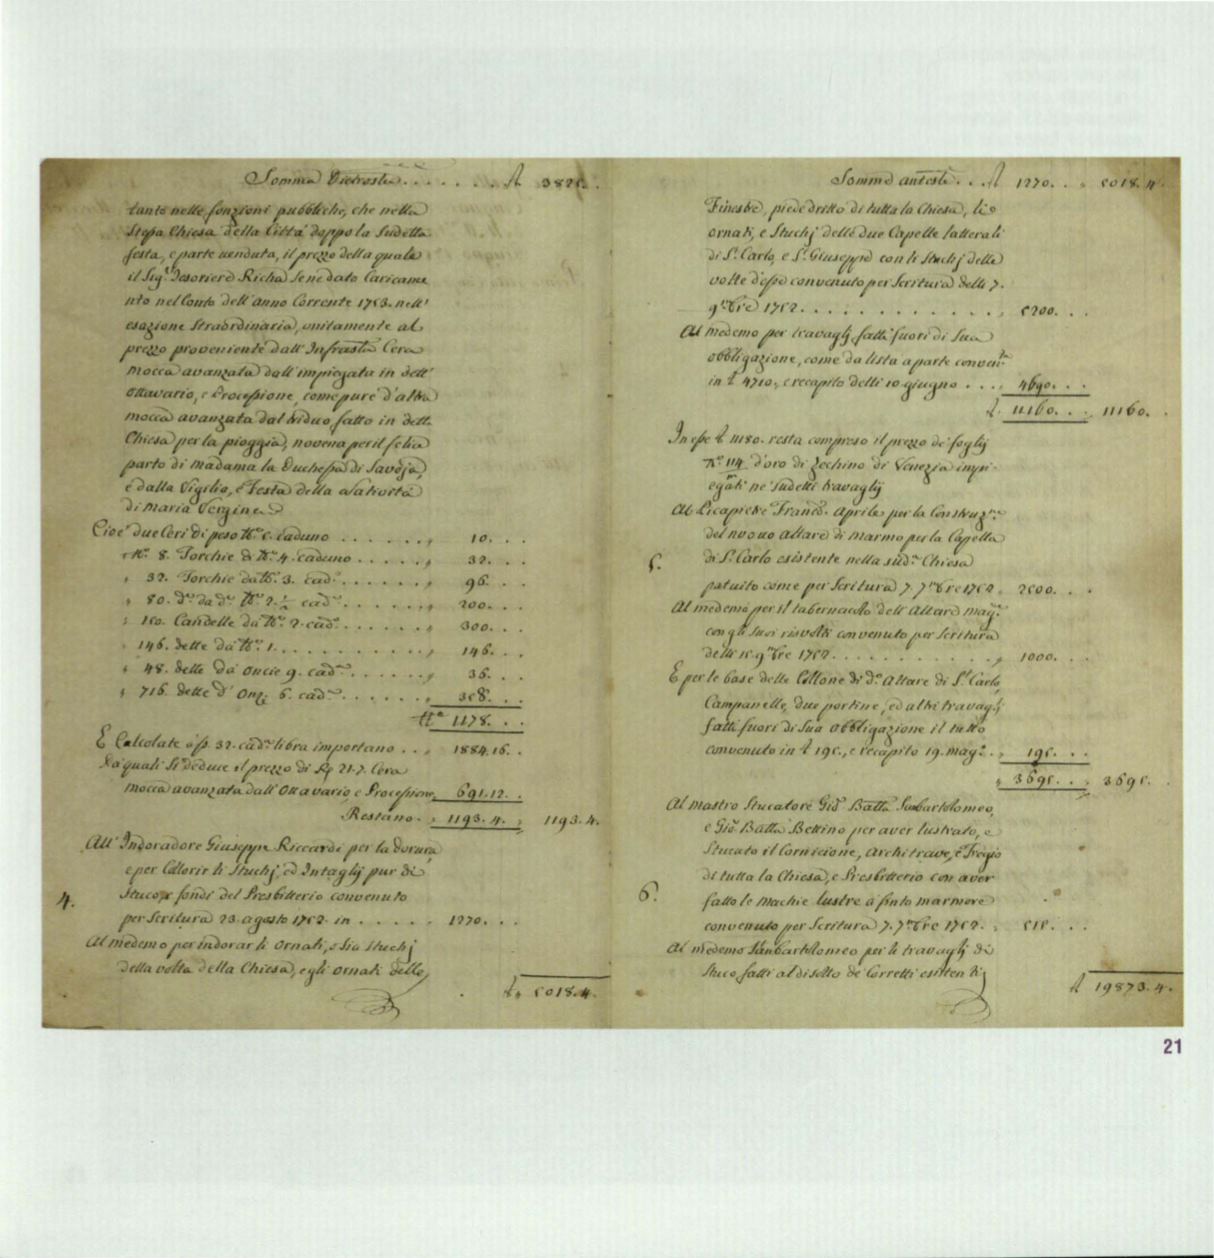 Somma Dietrosta . . . . . . . £ 3825.
tanto nelle fonzioni pubbliche, che nella
stessa Chiesa della Città doppo la sudetta
festa, e parte venduta, il prezzo della quale
il Sig.r Tesoriere Richa se ne dato Caricame
nto nel Conto dell'anno Corrente 1753. nell'
esazione straordinaria, unitamente al
prezzo proveniente dall'Infrasta Cera
mocca avanzata dall'impiegata in dett'
Ottavario, e Processione, come pure d'altra
mocca avanzata dal triduo fatto in detta
Chiesa per la pioggia, novena per il felice
parto di madama la Duchessa di Savoja,
e dalla Vigilia, e Festa della Natività
di Maria Vergine
Cioè due Ceri di peso lb.e 5. caduno . . . . . . . „ 10. . .
N.o 8. Torchie di lb.e 4. caduno . . . . . „ 32. . .
„ 32. Torchie da lb. 3. cad.a . . . . . . „ 96. . .
„ 80. d.e da d.e lb.e 2. ½ cad.a . . . . . . „ 200. . .
„ 150. Candelle da lb.e 2. cad.a . . . . . . „ 300. . .
„ 146. dette da lb.a 1. . . . . . . . . . . „ 146. . .
„ 48. dette da oncie 9. cad.a . . . . . . „ 36. . .
„ 716. dette d'Onz.e 6. cad.a . . . . . . „ 358. . .
lb.e 1178. . .
E Calcolate a s. 32. cad.a libra importano . . „ 1884.16. .
Da quali si deduce il prezzo di Rp 21.7. Cera
mocca avanzata dall'Ottavario, e Processione „ 691.12. .
Restano . „ 1193. 4. „ 1193. 4.
All'Indoradore Giuseppe Riccardi per la dorura,
e per Collorir li Stuchj, ed Intaglij pur di
4. Stuco, e fondi del Presbitterio convenuto
per Scritura 23. agosto 1752. in . . . . . 1270. . .
Al medemo per indorar li ornati, o sia stuchj
della volta della Chiesa, e gli ornati delle
£ 5018. 4.
Somma antesta . . . £ 1270. . „ 5018. 4.
Finestre, piededritto di tutta la Chiesa, li
ornati, e Stuchj delle due Capelle latterali
di S.t Carlo, e S.t Giuseppe con li Stuchj delle
volte d'esse convenuto per Scritura delli 7.
9.bre 1752. . . . . . . . . . . . . . „ 5200. . .
Al medemo per travaglj fatti fuori di sua
obbligazione, come da lista a parte convenuta
in £ 4710., e recapito delli 10 giugno . . . . 4690. . .
£. 11160. . . „ 11160. .
In esse £ 11180. resta compreso il prezzo de' foglij
N.o 114 d'oro di Zechino di Venezia impi-
egati ne' sudetti travaglij
Al Picapietre Franc.o Aprile per la Construz.ne
del nuovo altare di marmo per la Capella
5. di S.t Carlo esistente nella sud.a Chiesa
patuito come per Scritura 7. 7.mbre 1752. 2500. . .
Al medemo per il tabernacolo dell'Altare mag.re
con gli suoi risvolti convenuto per Scritura
delli 15. 9.bre 1752. . . . . . . . . . . . . „ 1000. . .
E per le base delle Collone di d.o Altare di S.t Carlo,
Campanelle, due portine, ed altri travaglj
fatti fuori di sua obbligazione il tutto
convenuto in £ 195., e recapito 19. mag.o . „ 195. . .
„ 3695. . . „ 3695. .
Al mastro Stucatore Gio. Batta Sanbartolomeo,
e Gio. Batta Bettino per aver lustrato, e
Stucato il Cornicione, Architrave, e Fregio
di tutta la Chiesa, e Presbitterio con aver
6. fatto le machie lustre a finto marmore
convenuto per Scritura 7. 7.mbre 1752. „ 515. . .
Al medemo Sanbartolomeo per li travaglj di
Stuco fatti al di sotto de' Corretti esistenti
£ 19873. 4.
21